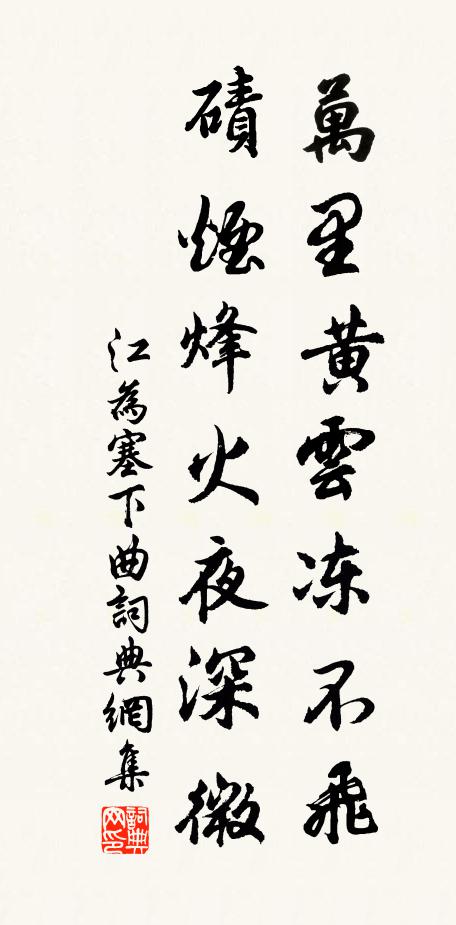 萬里黃雲冻不飛
磧煙烽火夜深微
江為塞下曲詞典網集
詞典网印